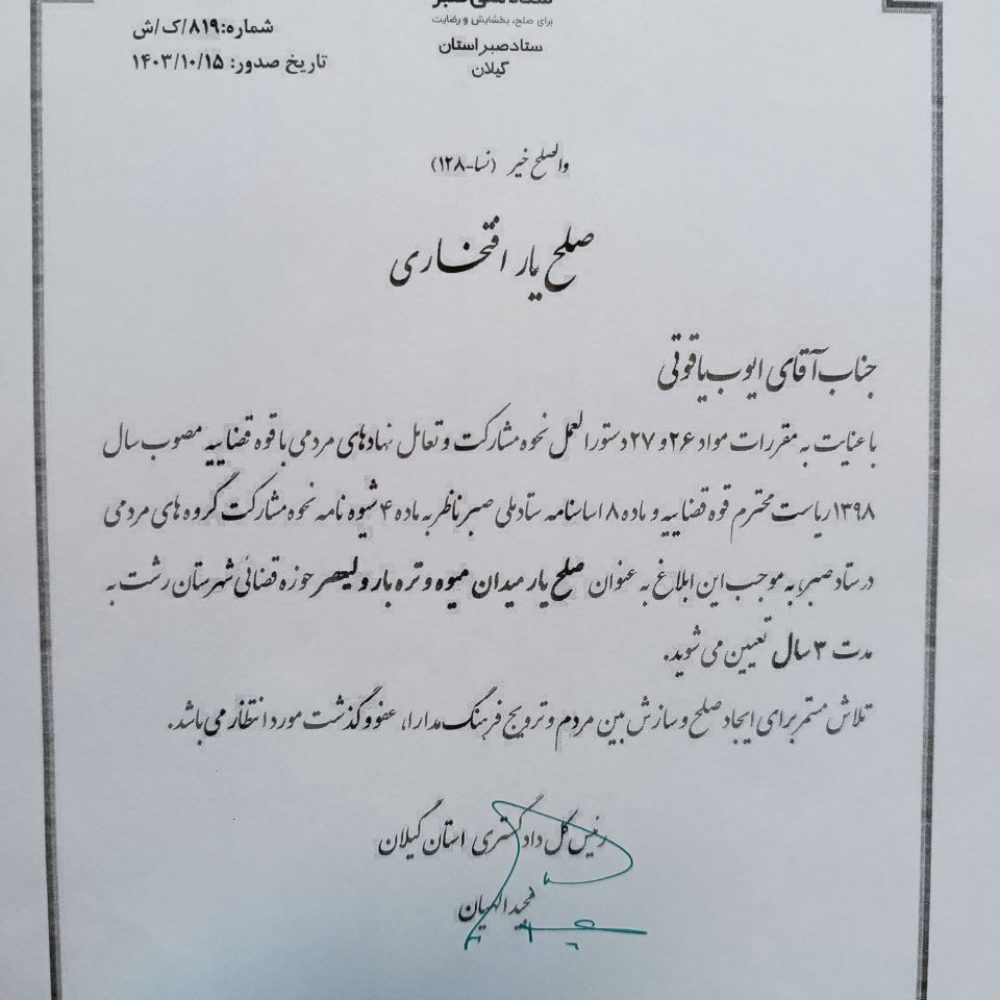 ستاد ملی صبر
برای صلح، بخشایش و رضایت
ستاد صبر استان
گیلان
شماره:۸۱۹/ک/ش
تاریخ صدور: ۱۴۰۳/۱۰/۱۵
والصلح خیر (نساء-۱۲۸)
صلح یار افتخاری
جناب آقای ایوب یاقوتی
با عنایت به مقررات مواد ۲۶ و ۲۷ دستورالعمل نحوه مشارکت و تعامل نهادهای مردمی با قوه قضاییه مصوب سال
۱۳۹۸ ریاست محترم قوه قضاییه و ماده ۸ اساسنامه ستاد ملی صبر ناظر به ماده ۴ شیوه نامه نحوه مشارکت گروه های مردمی
در ستاد صبر، به موجب این ابلاغ به عنوان صلح یار میدان میوه و تره بار ولیعصر حوزه قضائی شهرستان رشت به
مدت ۳ سال تعیین می شوید.
تلاش مستمر برای ایجاد صلح و سازش بین مردم و ترویج فرهنگ مدارا، عفو و گذشت مورد انتظار می باشد.
رئیس کل دادگستری استان گیلان
مجید الهیان